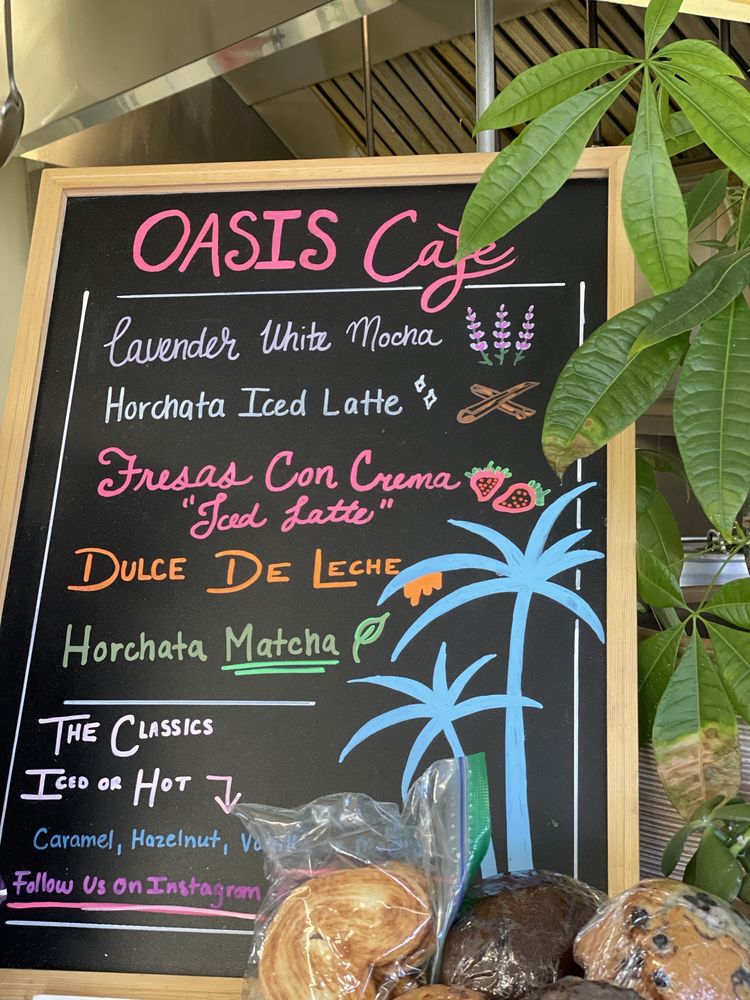 OASIS Cafe
Lavender White Mocha
Horchata Iced Latte
Fresas Con Crema
"Iced Latte"
DULCE DE LECHE
Horchata Matcha
THE CLASSICS
ICED OR HOT
Caramel, Hazelnut,
Follow Us On Instagram